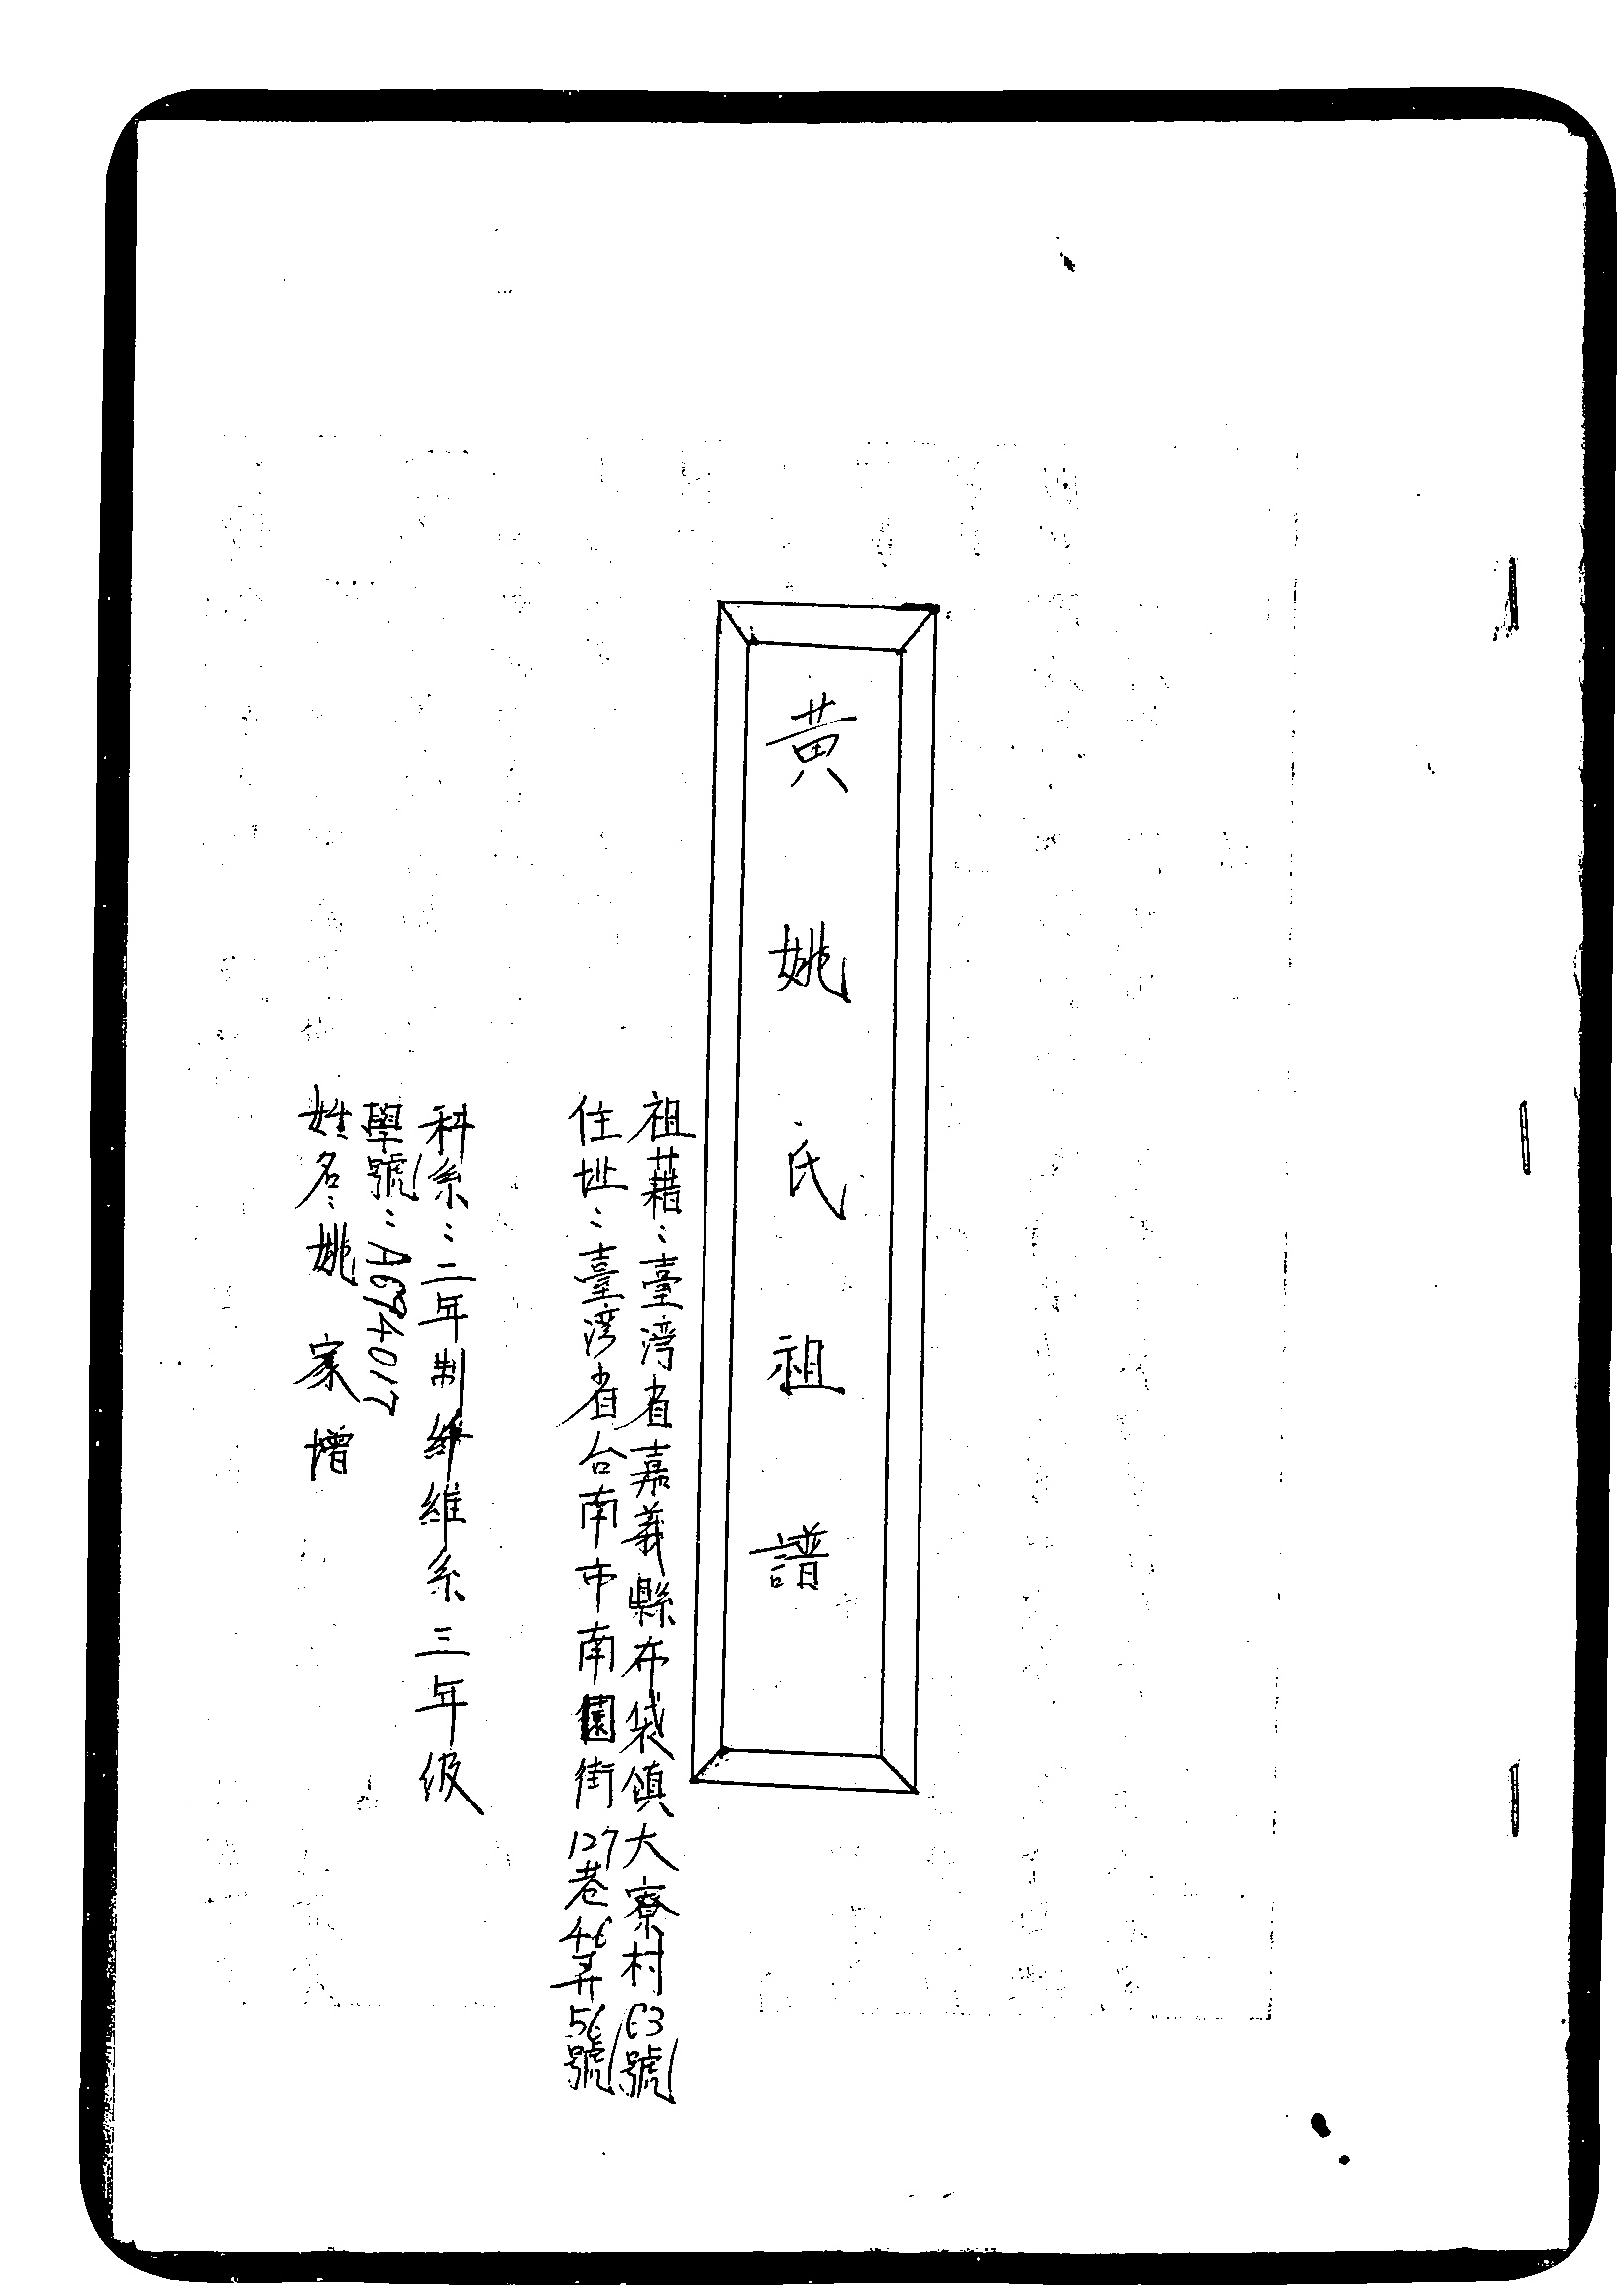 黃姚氏祖譜
祖藉：臺湾省嘉義縣布袋鎮大寮村63號
住址：臺湾省台南市南南園街127巷46弄56號
科系：二年制纤維系三年級
學號：A6794017
姓名：姚家增